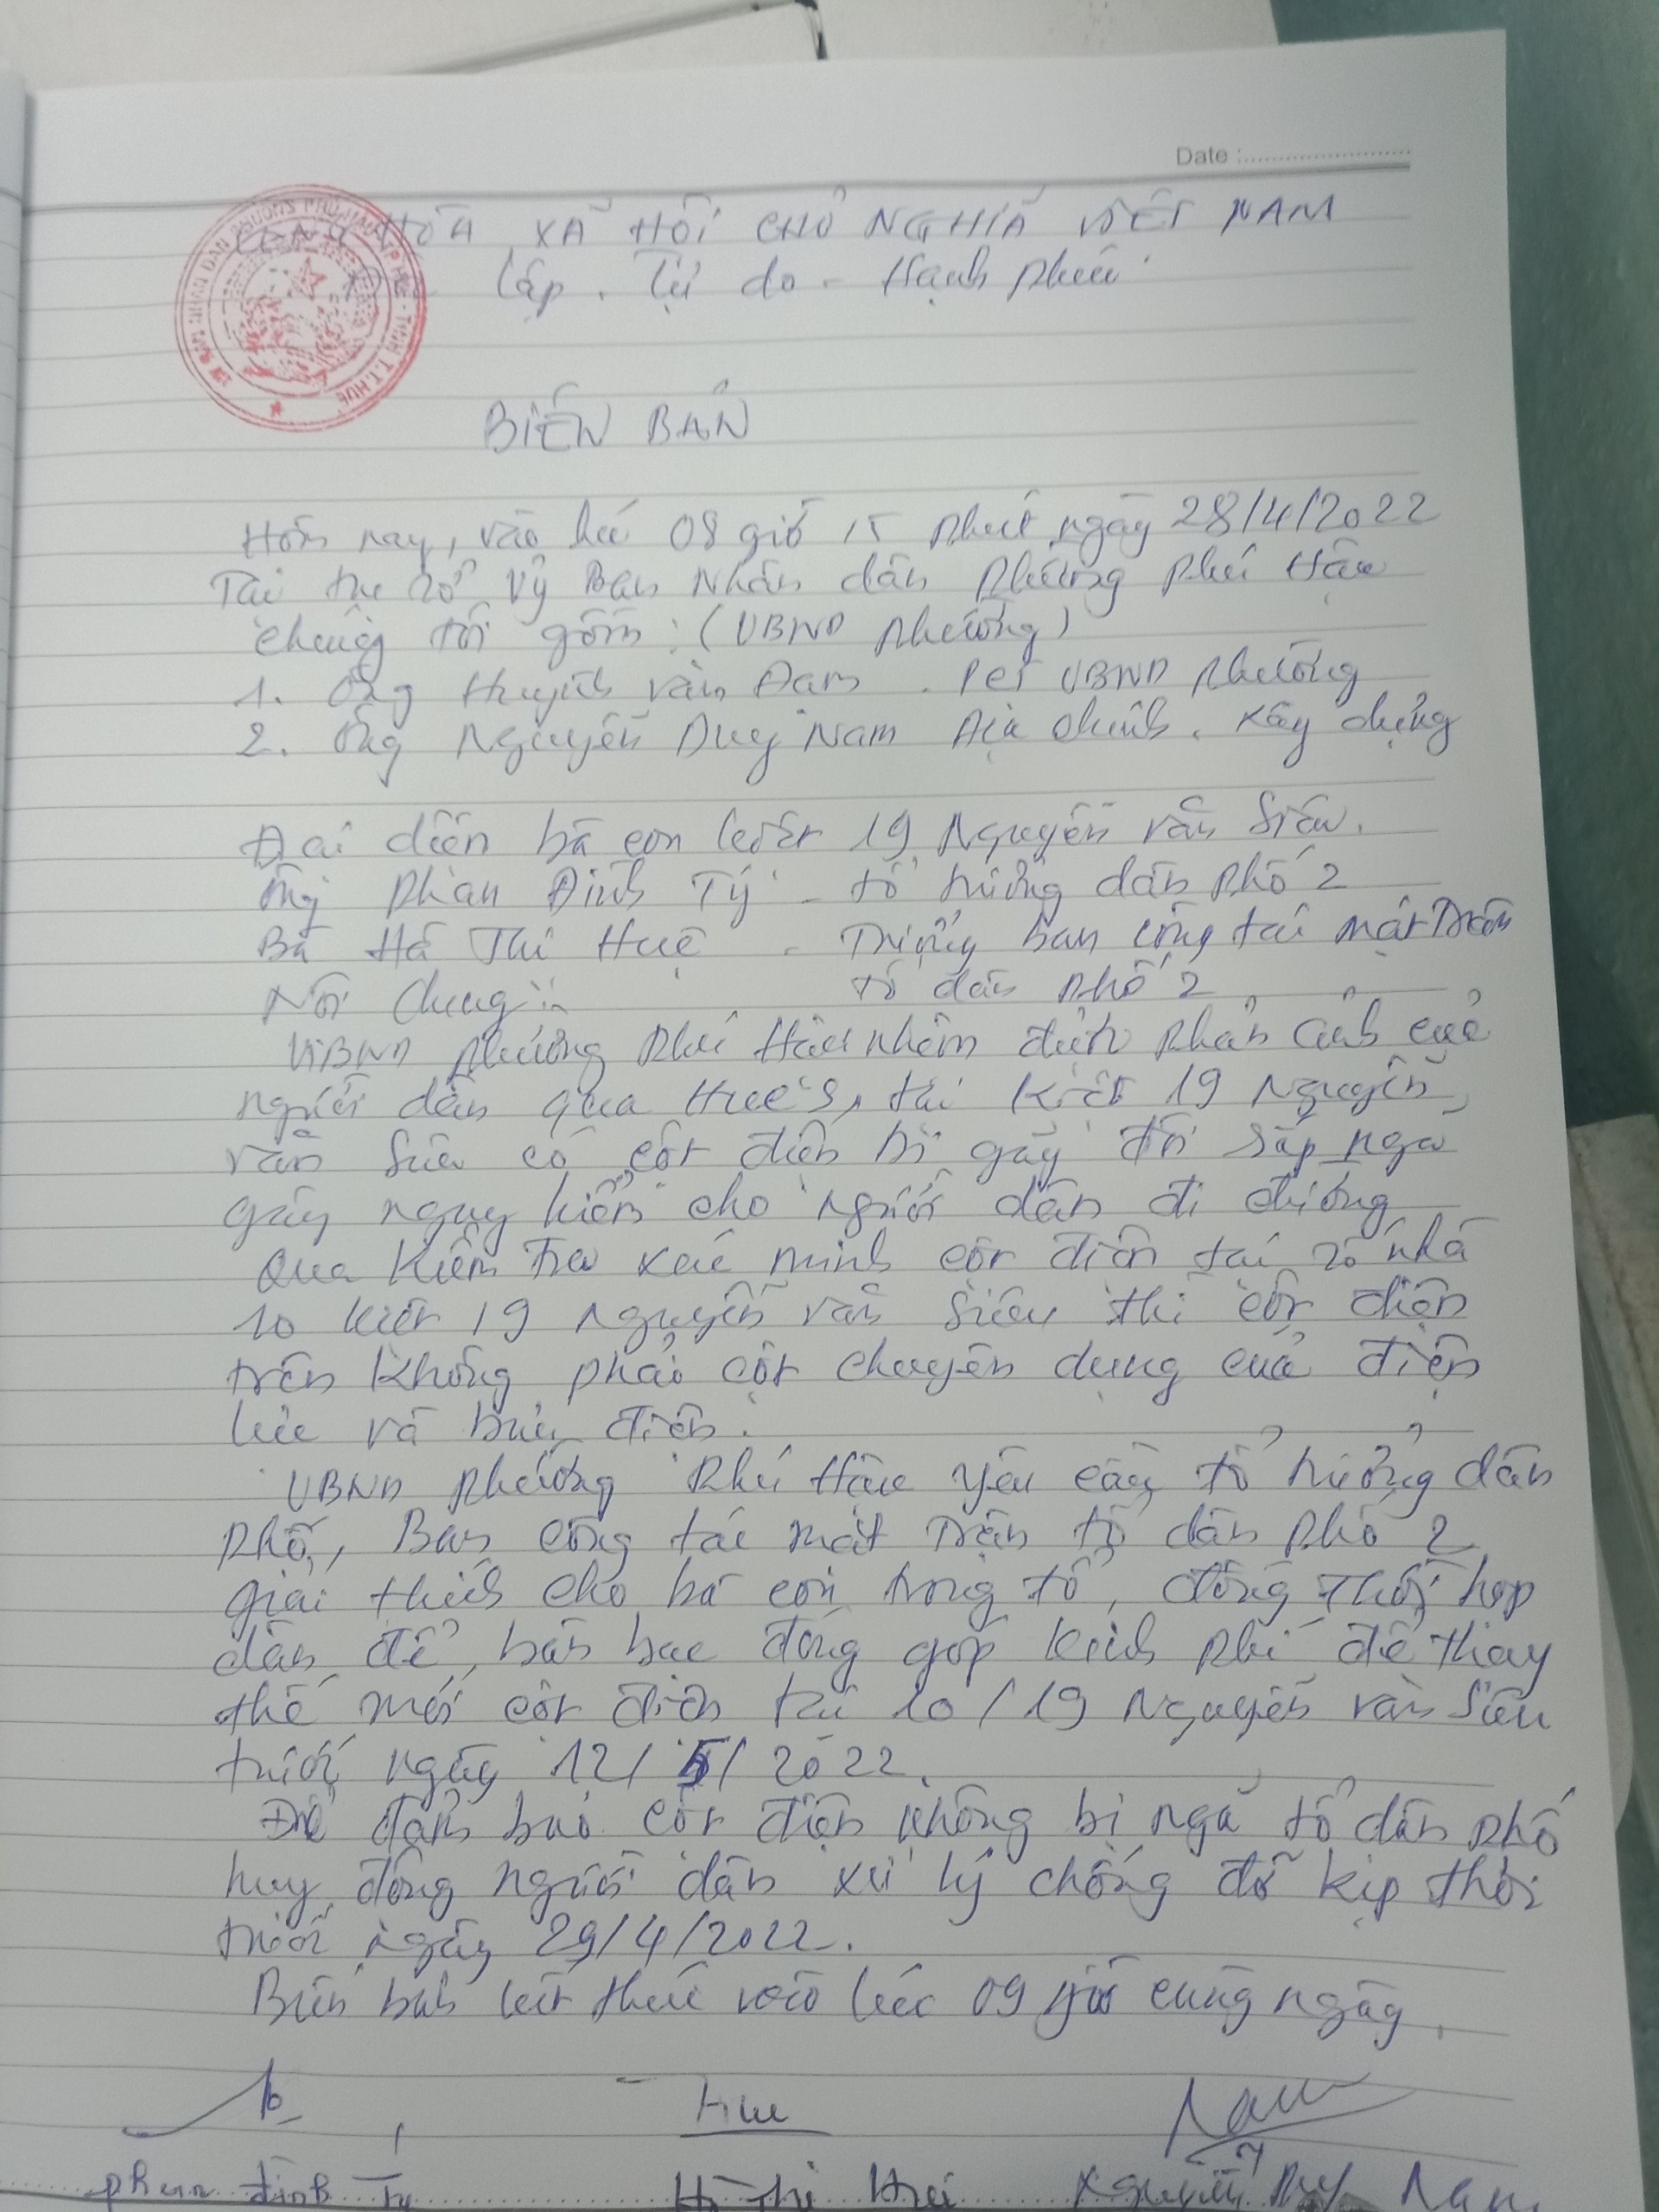 Date :
CỘNG HÒA XÃ HỘI CHỦ NGHĨA VIỆT NAM
Độc lập - Tự do - Hạnh phúc
ỦY BAN NHÂN DÂN PHƯỜNG PHÚ HẬU TP HUẾ - TỈNH T.T.HUẾ
BIÊN BẢN
Hôm nay, vào lúc 08 giờ 15 phút ngày 28/4/2022
Tại trụ sở Uỷ Ban Nhân dân phường Phú Hậu
chúng tôi gồm: (UBND phường)
1. Ông Huỳnh Văn Đàm . PCT UBND phường
2. Ông Nguyễn Duy Nam Địa chính . Xây dựng
Đại diện bà con kiệt 19 Nguyễn Văn Siêu.
Ông Phan Đình Tý - tổ trưởng dân phố 2
Bà Hồ Thị Huệ - Trưởng ban công tác mặt trận
tổ dân phố 2
Nội dung:
UBND phường Phú Hậu nhậm được phản ánh của
người dân qua Hue S, tại kiệt 19 Nguyễn
Văn Siêu có cột điện bị gãy đổ sắp ngã
gây nguy hiểm cho người dân đi đường
Qua kiểm tra xác minh cột điện tại số nhà
10 kiệt 19 Nguyễn Văn Siêu thì cột điện
trên không phải cột chuyên dụng của điện
lực và bưu điện.
UBND phường Phú Hậu yêu cầu tổ trưởng dân
phố, Ban công tác mặt trận tổ dân phố 2
giải thích cho bà con trong tổ, đồng thời họp
dân để bàn bạc đóng góp kinh phí để thay
thế mới cột điện tại 10/19 Nguyễn Văn Siêu
trước ngày 12/5/2022.
Để đảm bảo cột điện không bị ngã tổ dân phố
huy động người dân xử lý chống đỡ kịp thời
trước ngày 29/4/2022.
Biên bản kết thúc vào lúc 09 giờ cùng ngày.
Hue
Nam
Phan Đình Tý
Hồ Thị Huệ
Nguyễn Duy Nam